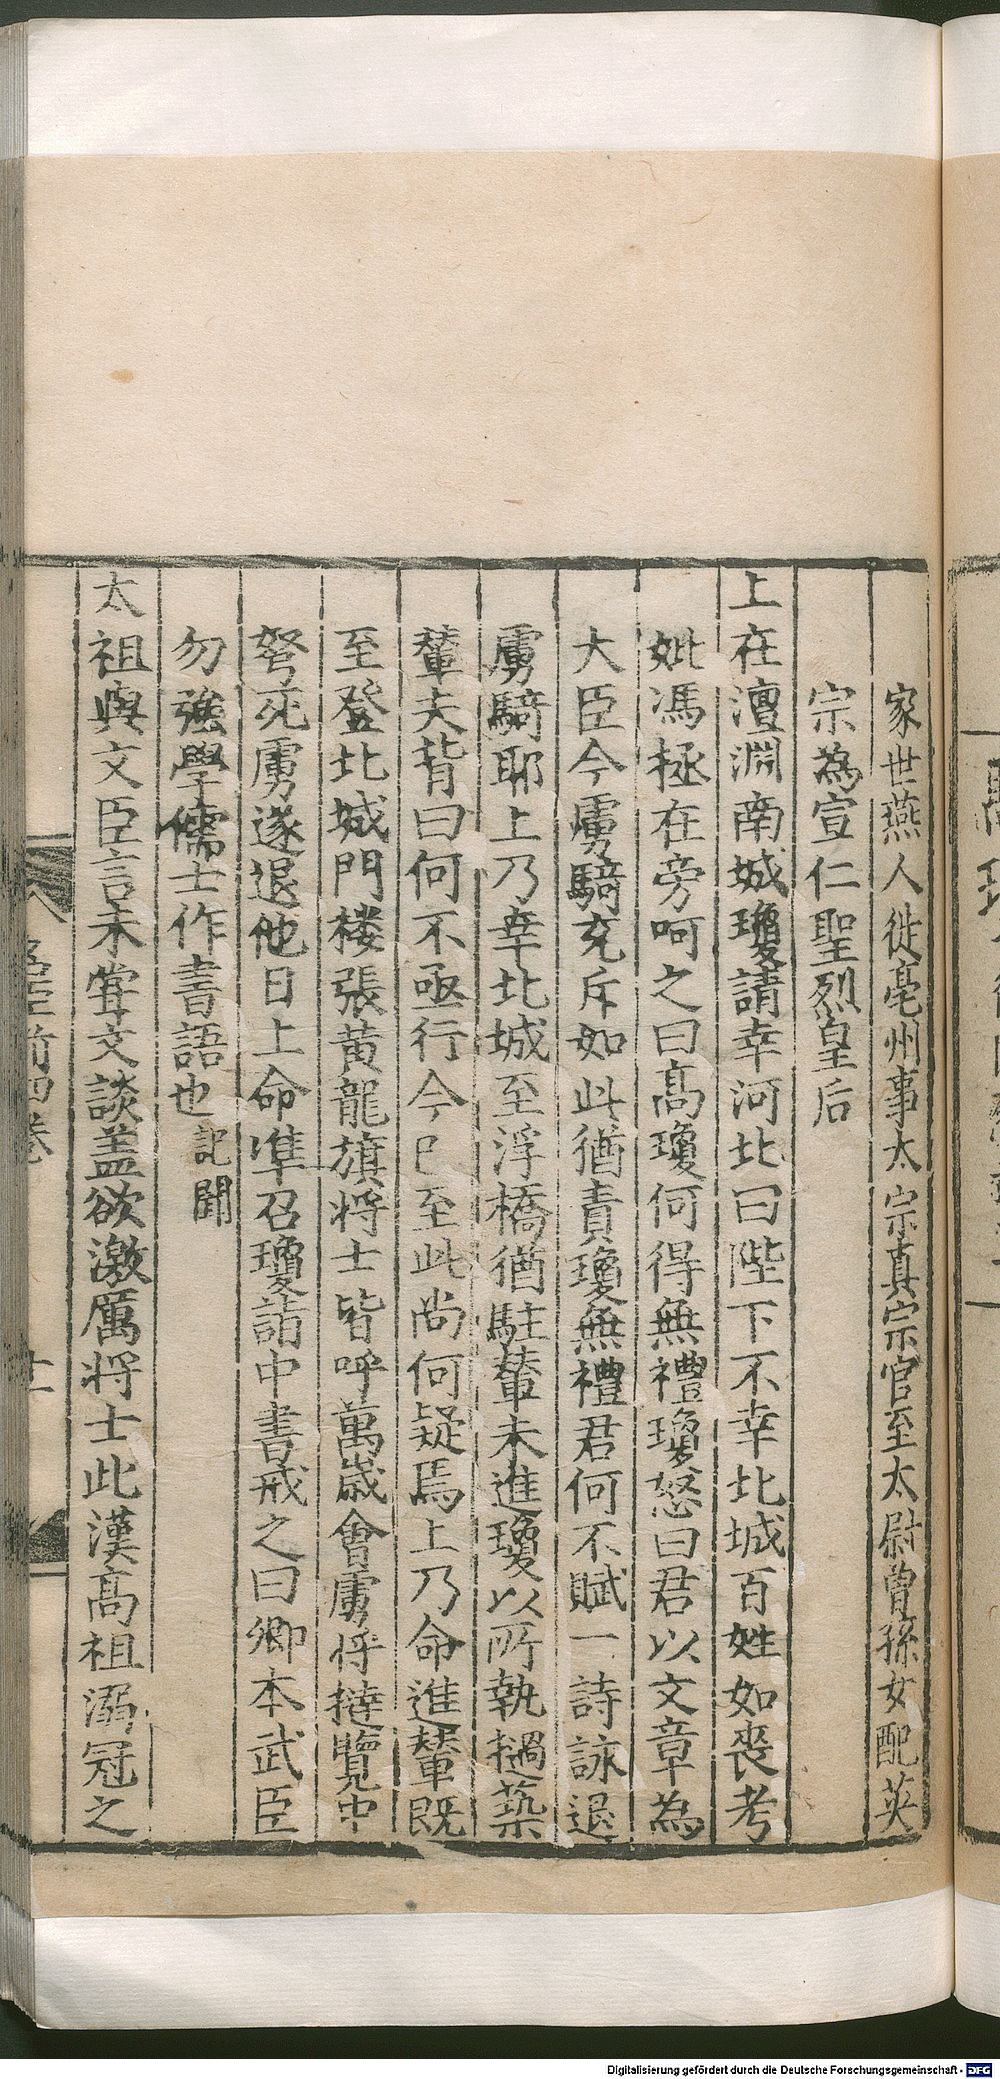 家世燕人徙亳州事太宗真宗官至太尉曾孫女配英
宗為宣仁聖烈皇后
上在澶淵南城瓊請幸河北曰陛下不幸北城百姓如喪考
妣馮拯在旁呵之曰髙瓊何得無禮瓊怒曰君以文章為
大臣今虜騎充斥如此猶責瓊無禮君何不賦一詩詠退
虜騎耶上乃幸北城至浮橋猶駐輦未進瓊以所執撾築
輦夫背曰何不亟行今已至此尚何疑焉上乃命進輦既
至登北城門楼張黄龍旗将士皆呼萬歲會虜俘撻覽中
弩死虜遂退他日上命準召瓊詣中書戒之曰卿本武臣
勿強學儒士作書語也記聞
太祖與文臣言未甞文談盖欲激厲将士此漢髙祖溺冠之
Digitalisierung gefördert durch die Deutsche Forschungsgemeinschaft - DFG